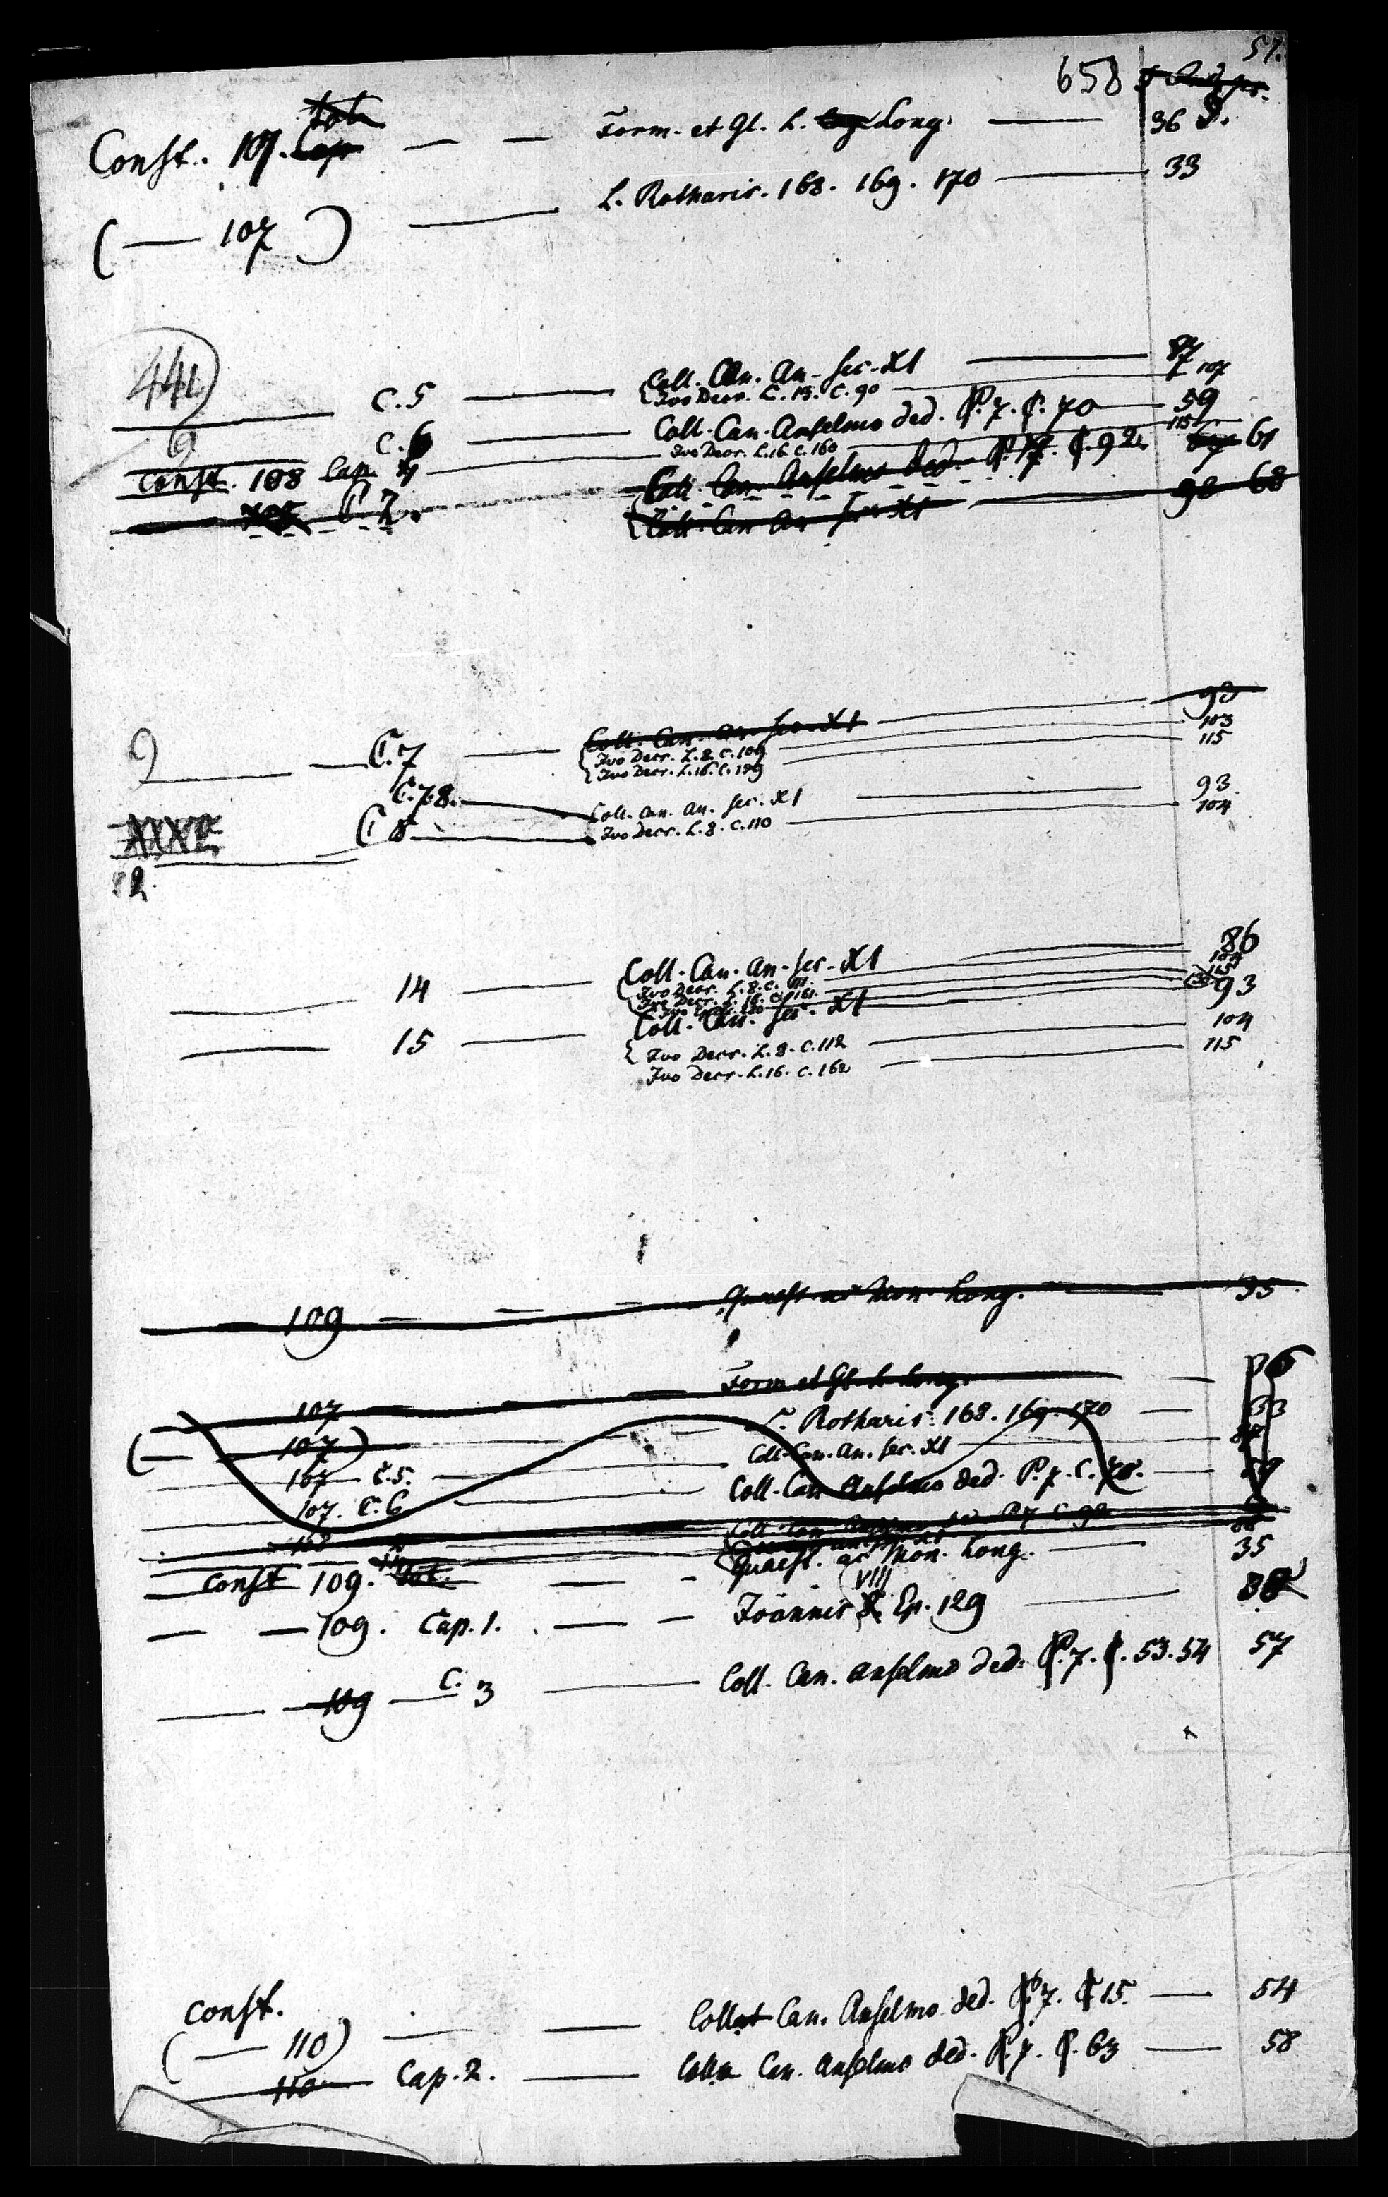 51.
658
Const. 107. — — Form. et Gl. L. Long. — 36
( — 107 ) — L. Rotharis. 168. 169. 170 — 33
44
C. 5 — Coll. Can. An. sec. XI — 87
Ivo Decr. L. 13. C. 90 — 107
9 C. 6 — Coll. Can. Anselmo ded. P. 7. C. 70 — 59
Ivo Decr. L. 16. C. 160 — 115
Const. 108 Cap. 4 — Coll. Can. Anselmo ded. P. 7. C. 92. 61
C. 7. Coll. Can. An. sec. XI — 90 68
9 — C. 7 — Coll. Can. An. sec. XI — 93
Ivo Decr. L. 8. C. 109 — 103
Ivo Decr. L. 16. C. 179 — 115
C. 7.8. Coll. Can. An. sec. XI — 93.
C 8 — Ivo Decr. L. 8. C. 110 — 104
2.
— 14 — Coll. Can. An. sec. XI — 86
Ivo Decr. L. 8. C. 111.
Ivo Decr. L. 16. C. 161.
— 15 — Coll. Can. sec. XI — 93
Ivo Decr. L. 8. C. 112 — 104
Ivo Decr. L. 16. C. 162 — 115
— 109 — Quaest. ac Mon. Long. — 35
107 — Form et Gl. L. Long. — 36
( — 107 ) — L. Rotharis. 168. 169. 170 — 33
107 C. 5. — Coll. Can. An. sec. XI — 87
107. C. 6 — Coll. Can. Anselmo ded. P. 7. C. 70. — 59
108 Coll. Can. Anselmo ded. P. 7 C. 92
Const 109. — — Quaest. ac Mon. Long. — 35
— — 109. Cap. 1. — — Joannis VIII Ep. 129 —
— 109 — C. 3 — Coll. Can. Anselmo ded. P. 7. C. 53. 54 57
Const.
( — 110 ) — — Coll. Can. Anselmo ded. P. 7. C 15. — 54
110 Cap. 2. — Coll. Can. Anselmo ded. P. 7. C. 63 — 58